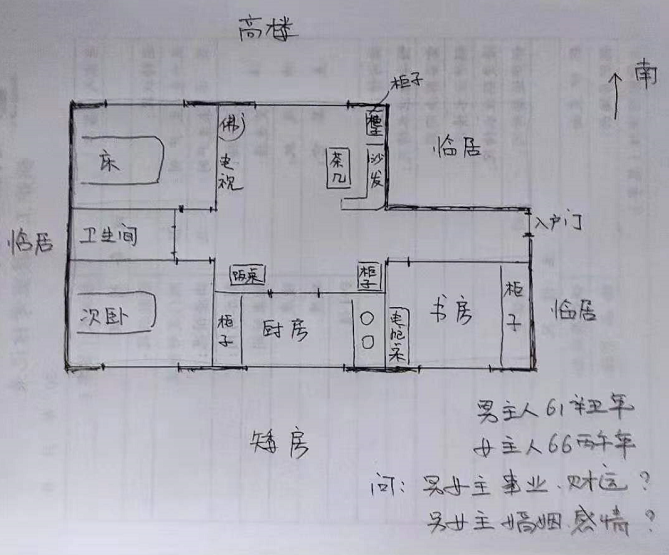 高楼
南
柜子
佛
床
电视
茶几
沙发
临居
卫生间
入户门
临居
饭桌
柜子
次卧
柜子
厨房
电脑桌
书房
柜子
临居
矮房
男主人61辛丑年
女主人66丙午年
问：男女主事业.财运？
男女主婚姻.感情？